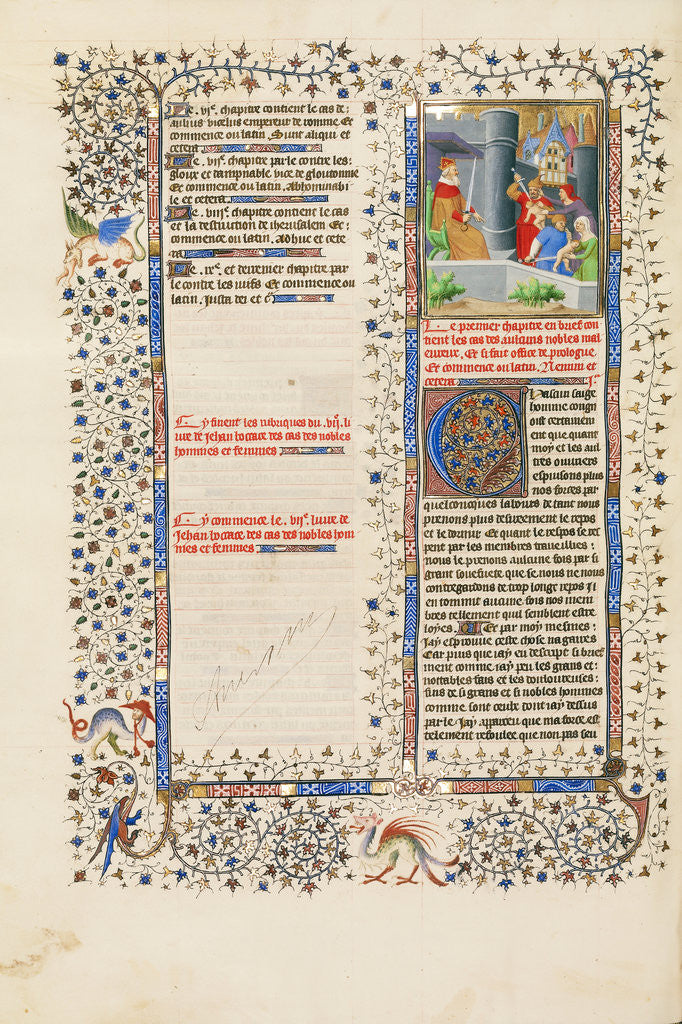 Le. vi<sup>e</sup>. chapitre contient le cas de:
aulus vitelius empereur de romme. Et
commence ou latin. Sunt aliqui et
cetera
Le. vii<sup>e</sup>. chapitre parle contre les:
gloux et dampnable vice de gloutonnie
Et commence ou latin. Abhominabi-
le et cetera.
Le. viii<sup>e</sup>. chapitre contient le cas
et la destruction de iherusalem Et:
commence ou latin. Adhuc et cete
ra
Le. ix<sup>e</sup>. et derrenier chapitre par
le contre les iuifs Et commence ou
latin. Justa dei et c
Cy finent les rubriques du. vii<sup>e</sup>. li
ure de Jehan bocace des cas des nobles
hommes et femmes
Cy commence le. vii<sup>e</sup>. liure de
Jehan bocace des cas des nobles hom
mes et femmes
Le premier chapitre en brief con
tient les cas des aucuns nobles mal
eureux. Et si fait office de prologue.
Et commence ou latin. Nenini et
cetera. j<sup>e</sup>.
Chascun saige
homme congn
oist certainem
ent que quant
moy et les aul
tres ouuriers
espuisons plus
nos forces par
quelconcques labours de tant nous
prenons plus desireement le repos
et le dormir Et quant le repos se res
pent par les membres traueillies:
nous le prenons aulcune fois par si
grant souefuete que se nous ne nous
contregardons de trop long repos Il
en tommist aucune fois nos mem
bres tellement quil semblent estre
loyes. Et par moy mesmes:
Jay esprouue ceste chose na gaires
Car puis que iay en descript si brief
ment comme iay peu les grans et:
nottables fais et les douloureuses:
fins de si grans et si nobles hommes
comme sont ceulx dont iay dessus
parle Jay apparceu que ma force est
tellement refoulee que non pas seu